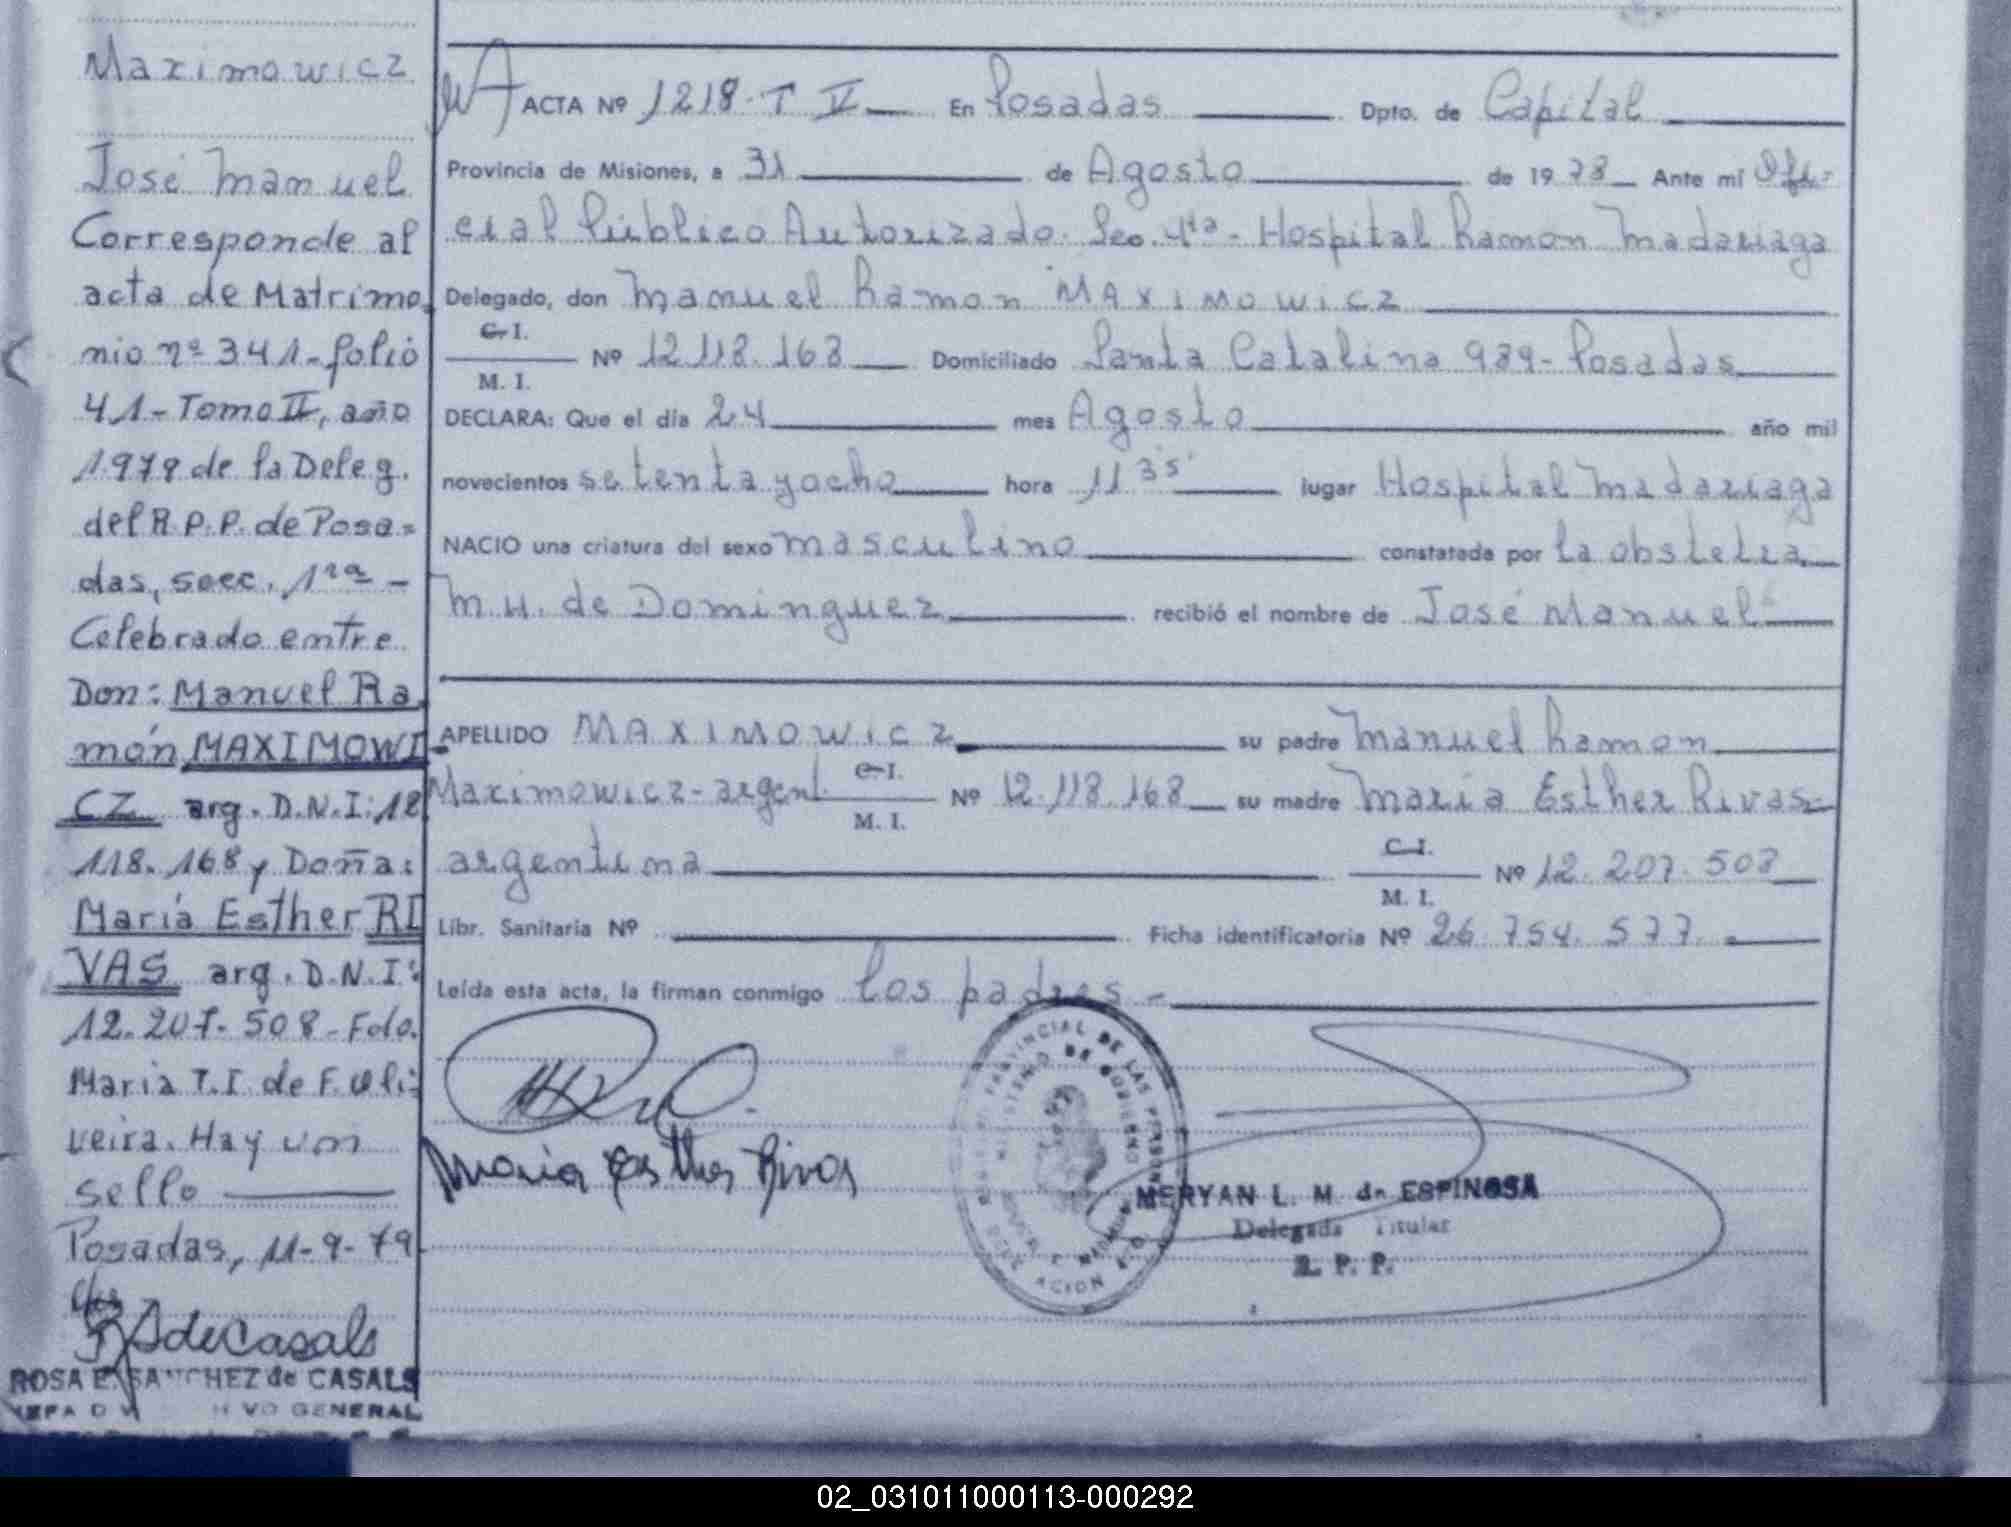 Maximowicz
José Manuel
Corresponde al
acta de Matrimo
nio nº 341-folio
41-Tomo II, año
1.979 de la Deleg.
del R.P.P. de Posa=
das, secc. 1ra -
Celebrado entre
Don: Manuel Ra
món MAXIMOWI
CZ arg. D.N.I: 12
118.168 y Doña:
María Esther RI
VAS arg. D.N.I:
12.207.508-Fdo.
Maria T.I. de F. Oli=
veira. Hay un
sello
Posadas, 11-9-79
RSdeCasals
ROSA E. SANCHEZ de CASALS
GENERAL
ACTA Nº 1218-T V En Posadas Dpto. de Capital
Provincia de Misiones, a 31 de Agosto de 1978 Ante mí Ofi=
cial Público Autorizado. Sec. 4ta - Hospital Ramon Madariaga
Delegado, don Manuel Ramon MAXIMOWICZ
C. I.
M. I. Nº 12.118.168 Domiciliado Santa Catalina 989-Posadas
DECLARA: Que el día 24 mes Agosto año mil
novecientos setenta y ocho hora 11 35' lugar Hospital Madariaga
NACIO una criatura del sexo masculino constatada por la obstetra
M.H. de Dominguez recibió el nombre de José Manuel
APELLIDO MAXIMOWICZ su padre Manuel Ramon
Maximowicz-argent. C. I.
M. I. Nº 12.118.168 su madre Maria Esther Rivas-
argentina C. I.
M. I. Nº 12.207.508
Libr. Sanitaria Nº Ficha identificatoria Nº 26.754.577.
Leída esta acta, la firman conmigo los padres-
Maria Esther Rivas
PROVINCIAL DE LAS PERSONAS
MINISTERIO DE GOBIERNO
MERYAN L. M. de ESPINOSA
Delegada Titular
R. P. P.
02_031011000113-000292